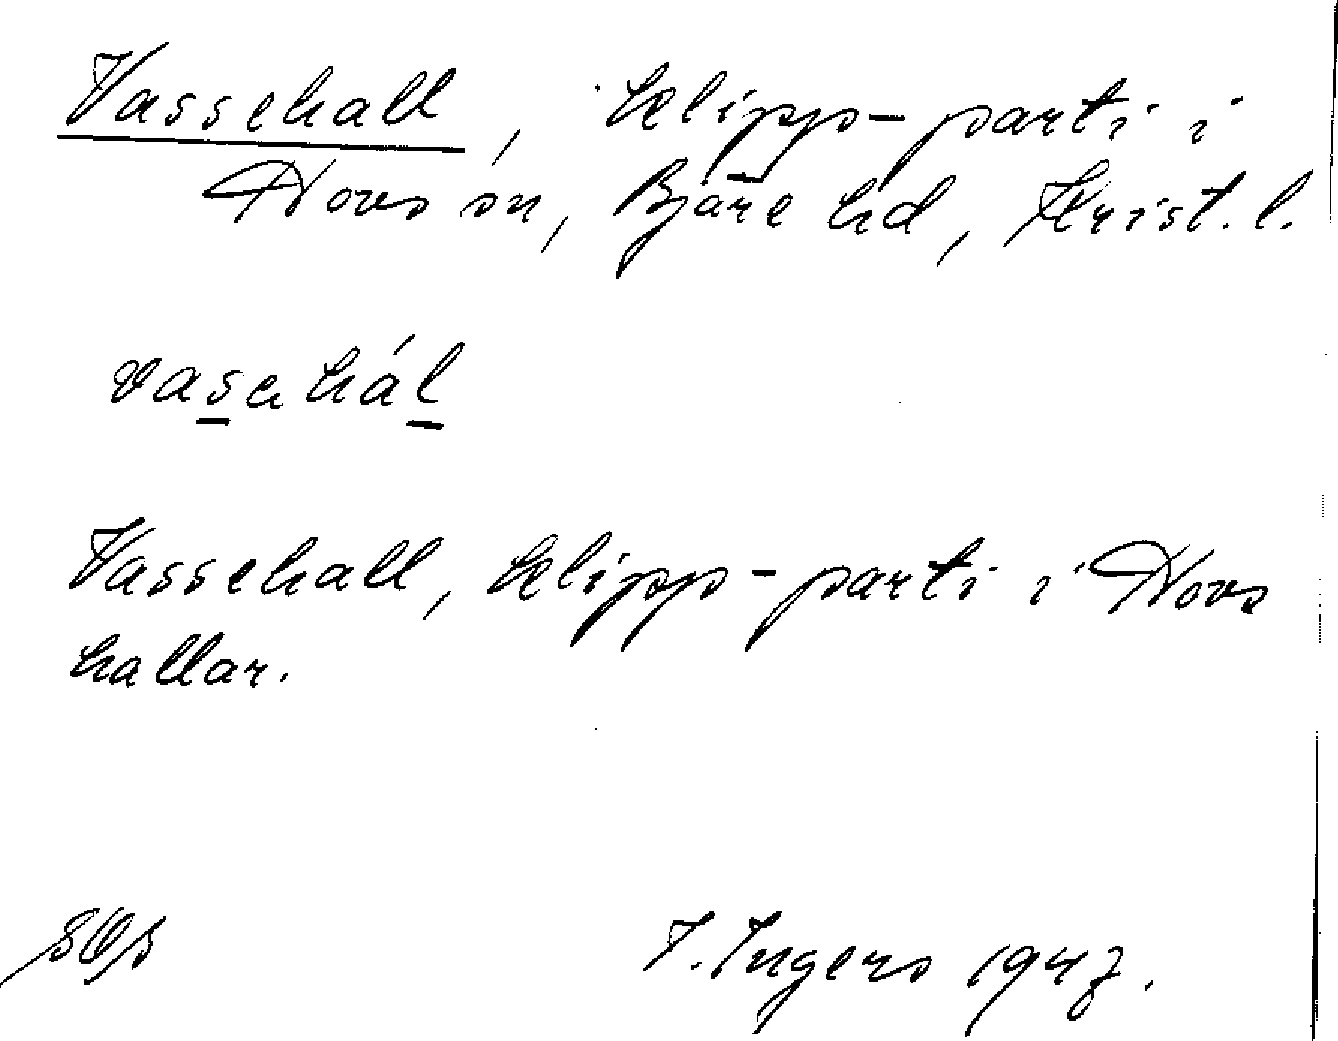 Vassehall, klipp-parti i
Hovs sn, Bjäre hd, Krist. l.
vasahál
Vassehall, klipp-parti i Hovs
hallar.
I. Ingers 1947.